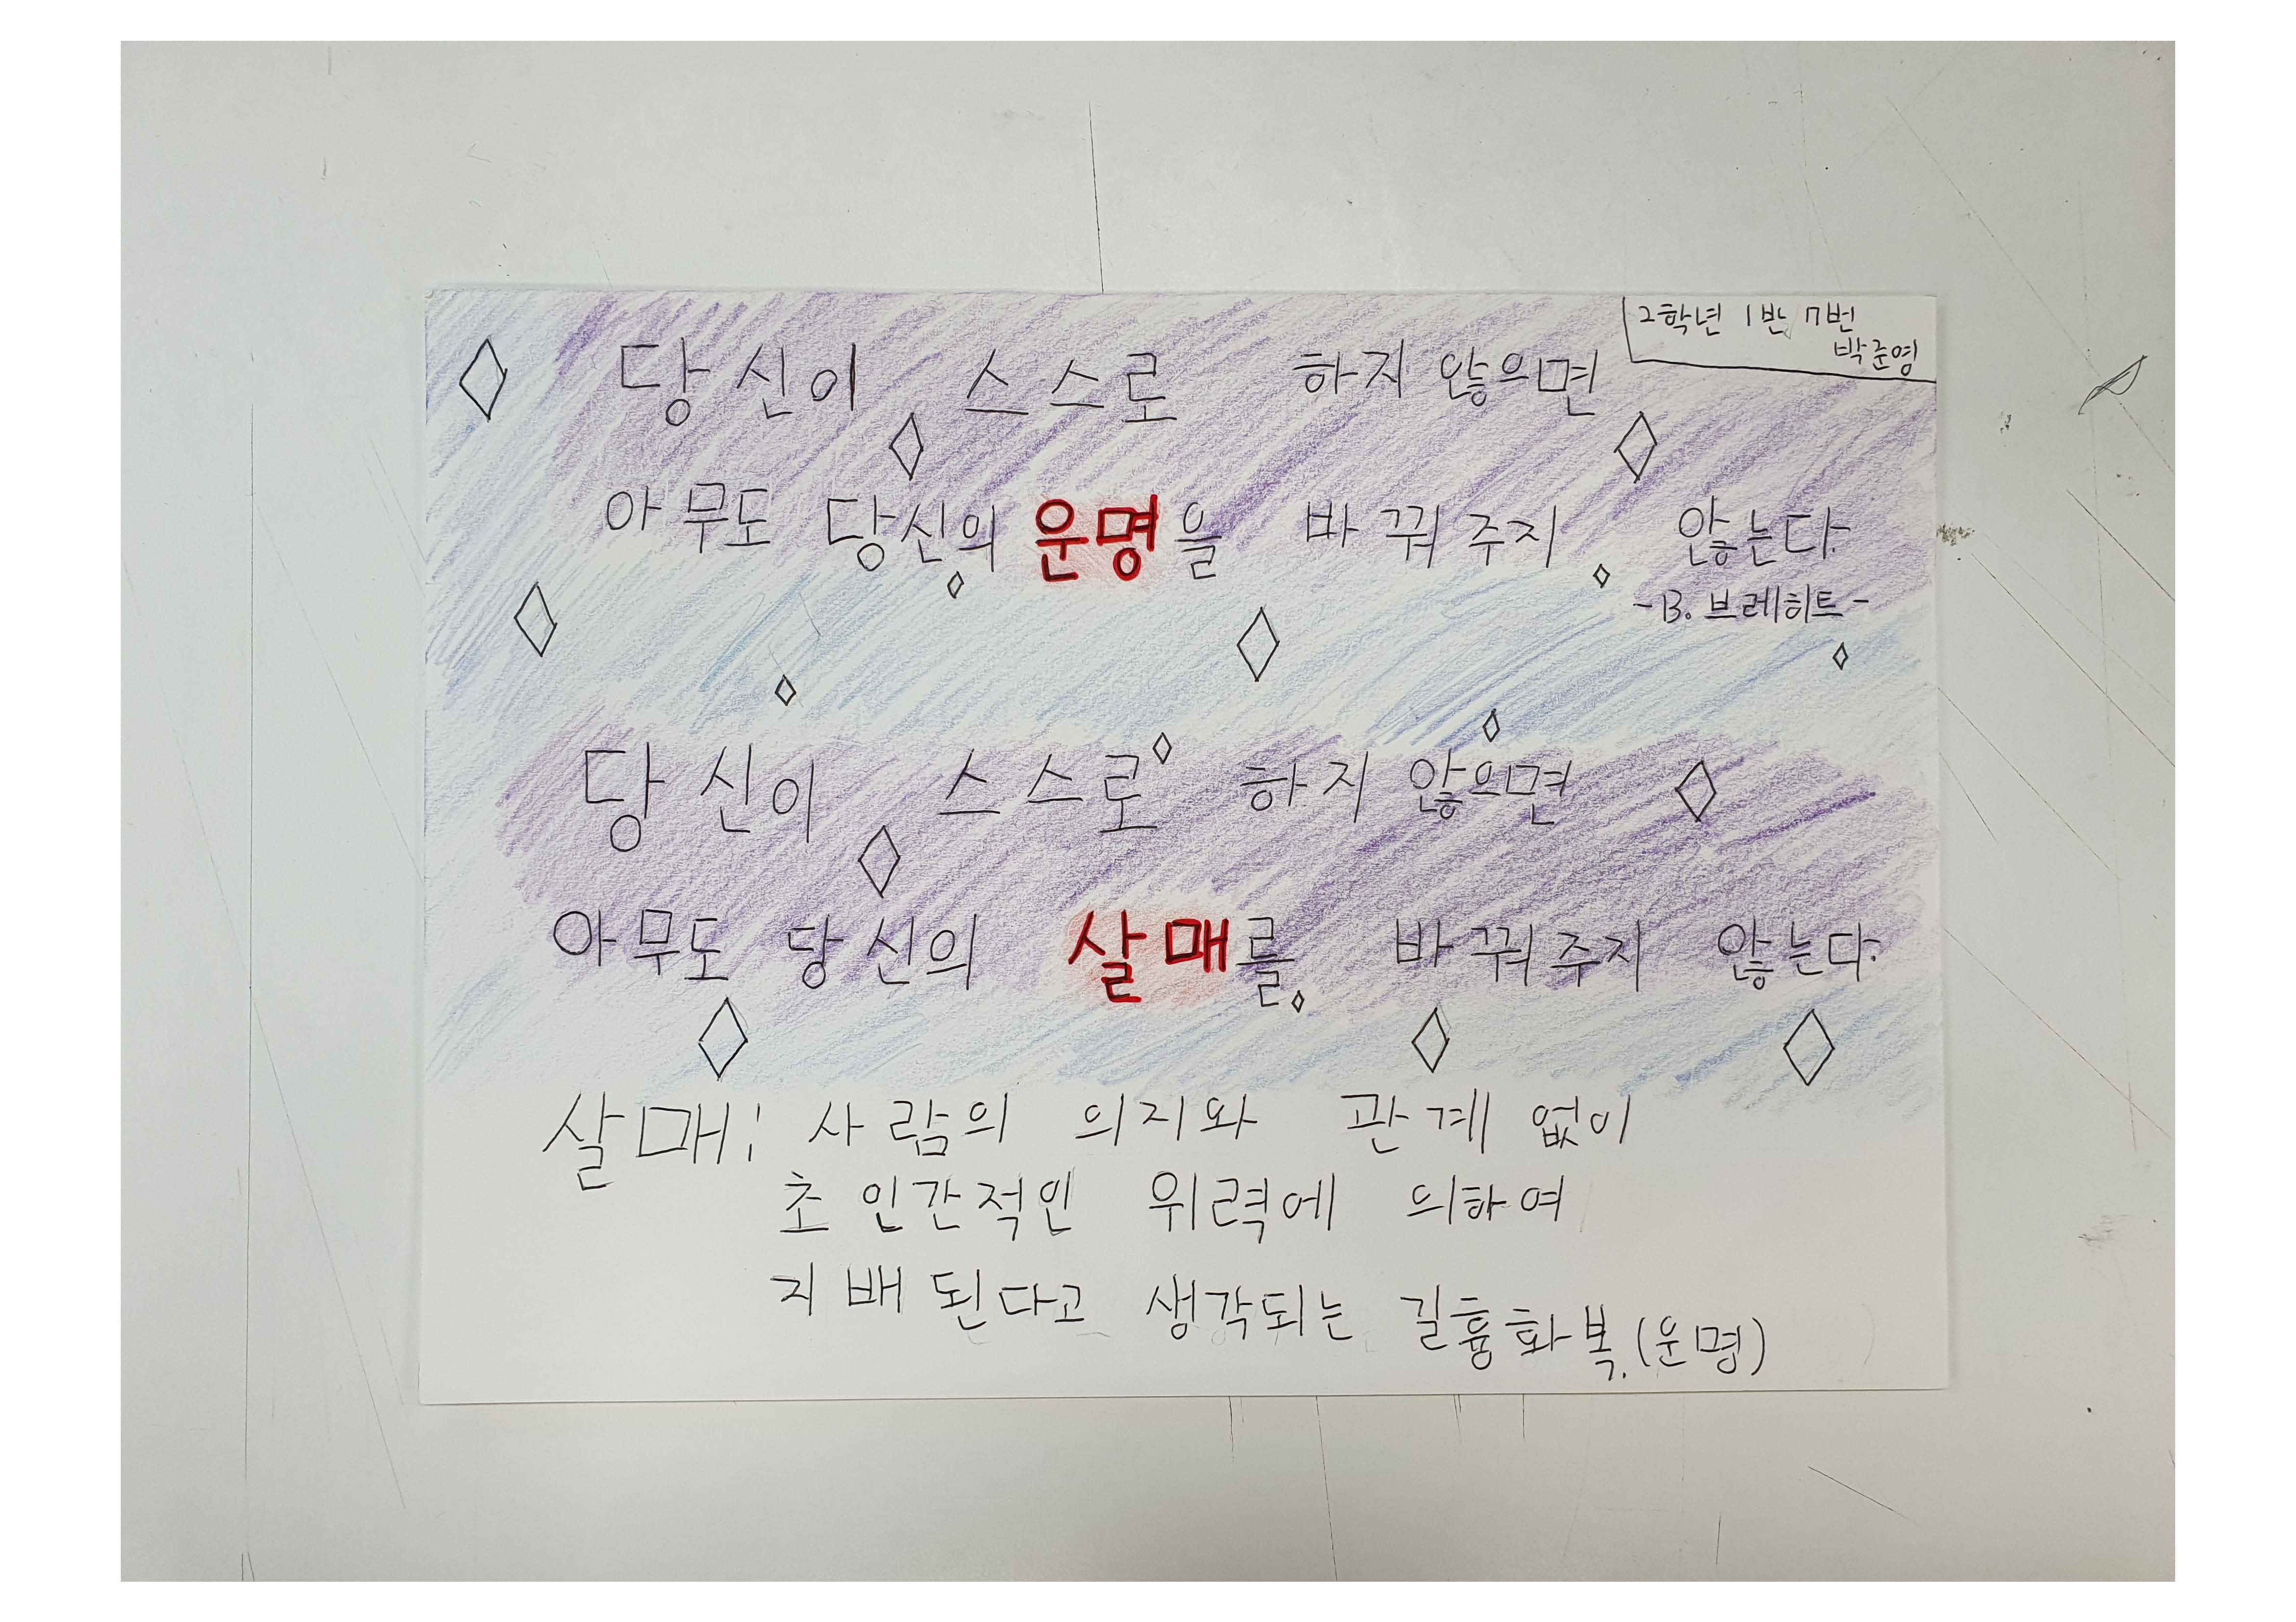 2학년 1반 7번
박준영
당신이 스스로 하지 않으면
아무도 당신의 운명을 바꿔주지 않는다.
-B. 브레히트-
당신이 스스로 하지 않으면
아무도 당신의 살매를 바꿔주지 않는다.
살매: 사람의 의지와 관계 없이
초인간적인 위력에 의하여
지배된다고 생각되는 길흉화복.(운명)